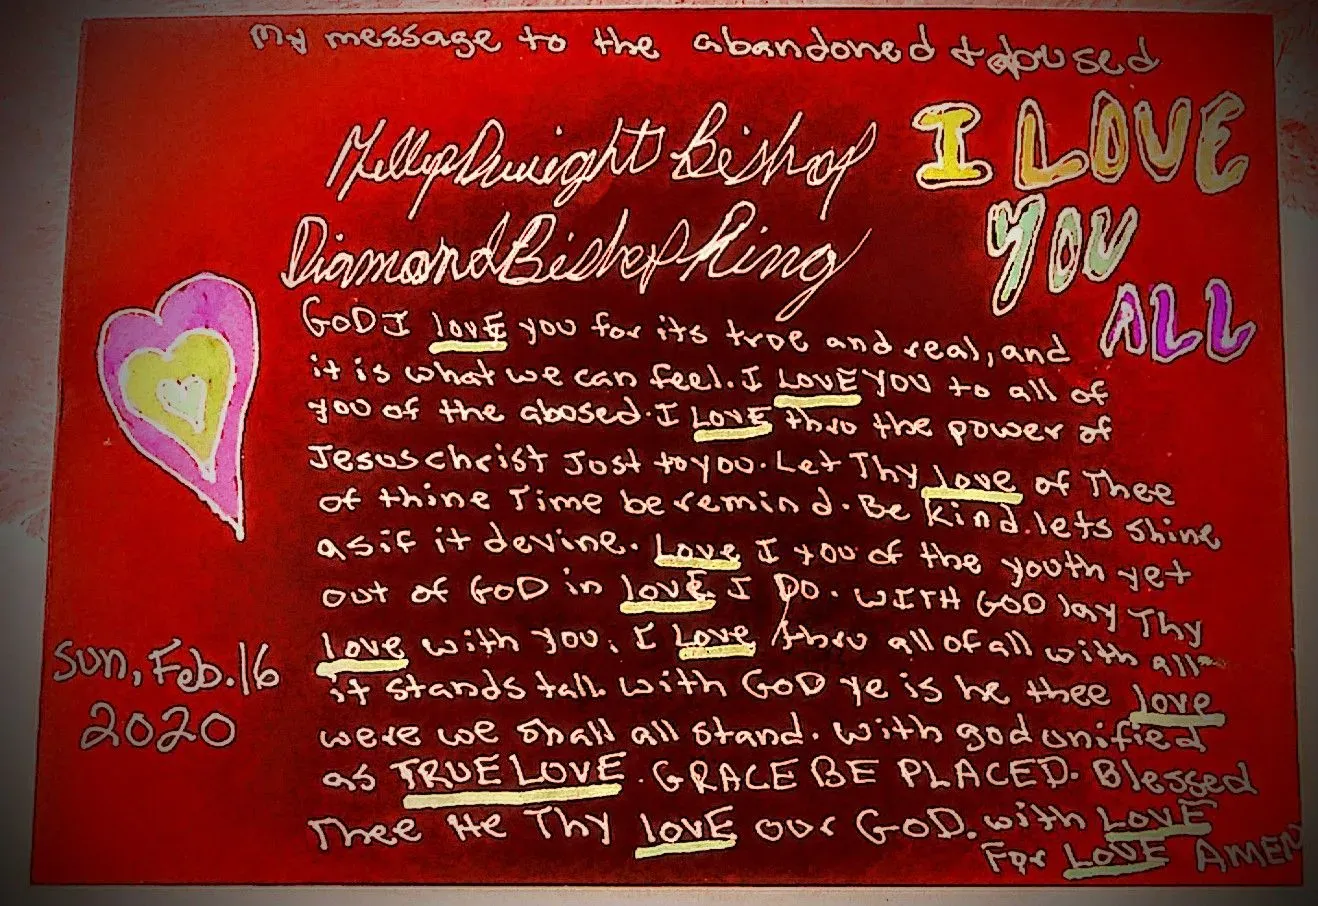 My message to the abandoned + abused
Dwight Bishop
Diamond Bishop King
I LOVE
YOU
ALL
GOD I lovE you for its troe and real, and
it is what we can feel. I LOVE YOU to all of
you of the abosed. I LOVE thro the power of
Jesus christ Just to you. Let Thy love of Thee
of thine Time be remind. Be kind. lets shine
as if it devine. Love I you of the youth yet
out of GoD in lovE I DO. WITH GOD lay Thy
love with you. I Love thru all of all with all
it stands tall. with GOD ye is he thee love
were we shall all stand. with god unified
as TRUE LOVE. GRACE BE PLACED. Blessed
Thee He Thy lovE our GoD. with LOVE
For LOVE AMEN
Sun, Feb. 16
2020